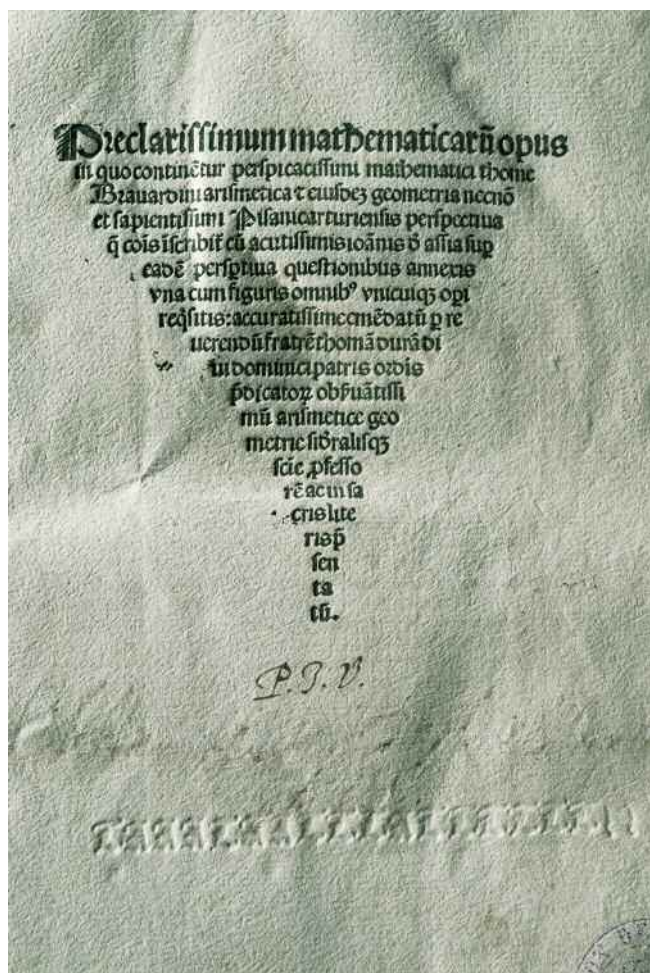 Preclarissimum mathematicarũ opus
in quo continẽtur perspicacissimi mathematici thome
Brauardini arismetica ⁊ eiusdeʒ geometria necnõ
et sapientissimi Pisani carturiensis perspectiua
q̃ cõis ĩscribit̃ cũ acutissimis ioãnis ď assia sup
eadẽ perspctiua questionibus annexis
vna cum figuris omnibꝰ vnicuiqʒ opi
req̃sitis: accuratissime emẽdatũ ꝑ re
uerendũ fratrẽ thomã durã di
ui dominici patris ordĩs
p̃dicatoꝝ obẜuãtissi
mũ arismetice geo
metrie liƀralisqʒ
scie ꝓfesso
rẽ ac in sa
cris lite
ris p̃
sen
ta
tũ.
P.J.V.